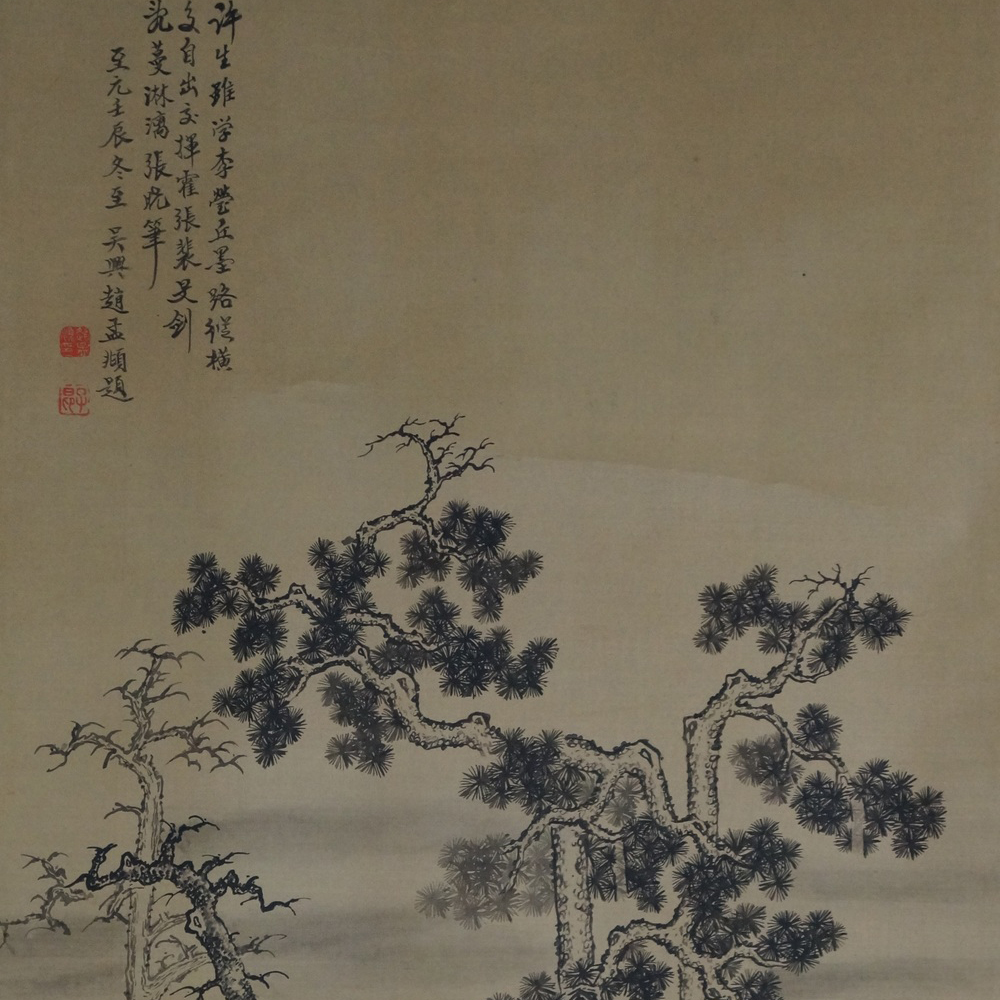 許生雖学李營丘墨路縱橫
多自出交揮霍張裴旻剑
龍蔓淋漓張旭筆
至元壬辰冬至 吴興趙孟頫題